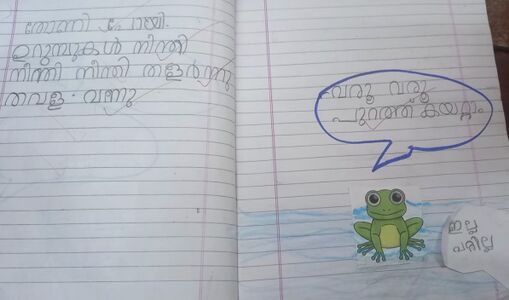 തോണി മറിഞ്ഞു.
ഉറുമ്പുകൾ നീന്തി
നീന്തി നീന്തി തളർന്നു
തവള വന്നു
വരൂ വരൂ
പുറത്ത് കയറ്റാം
ഇല്ല
പരില്ല